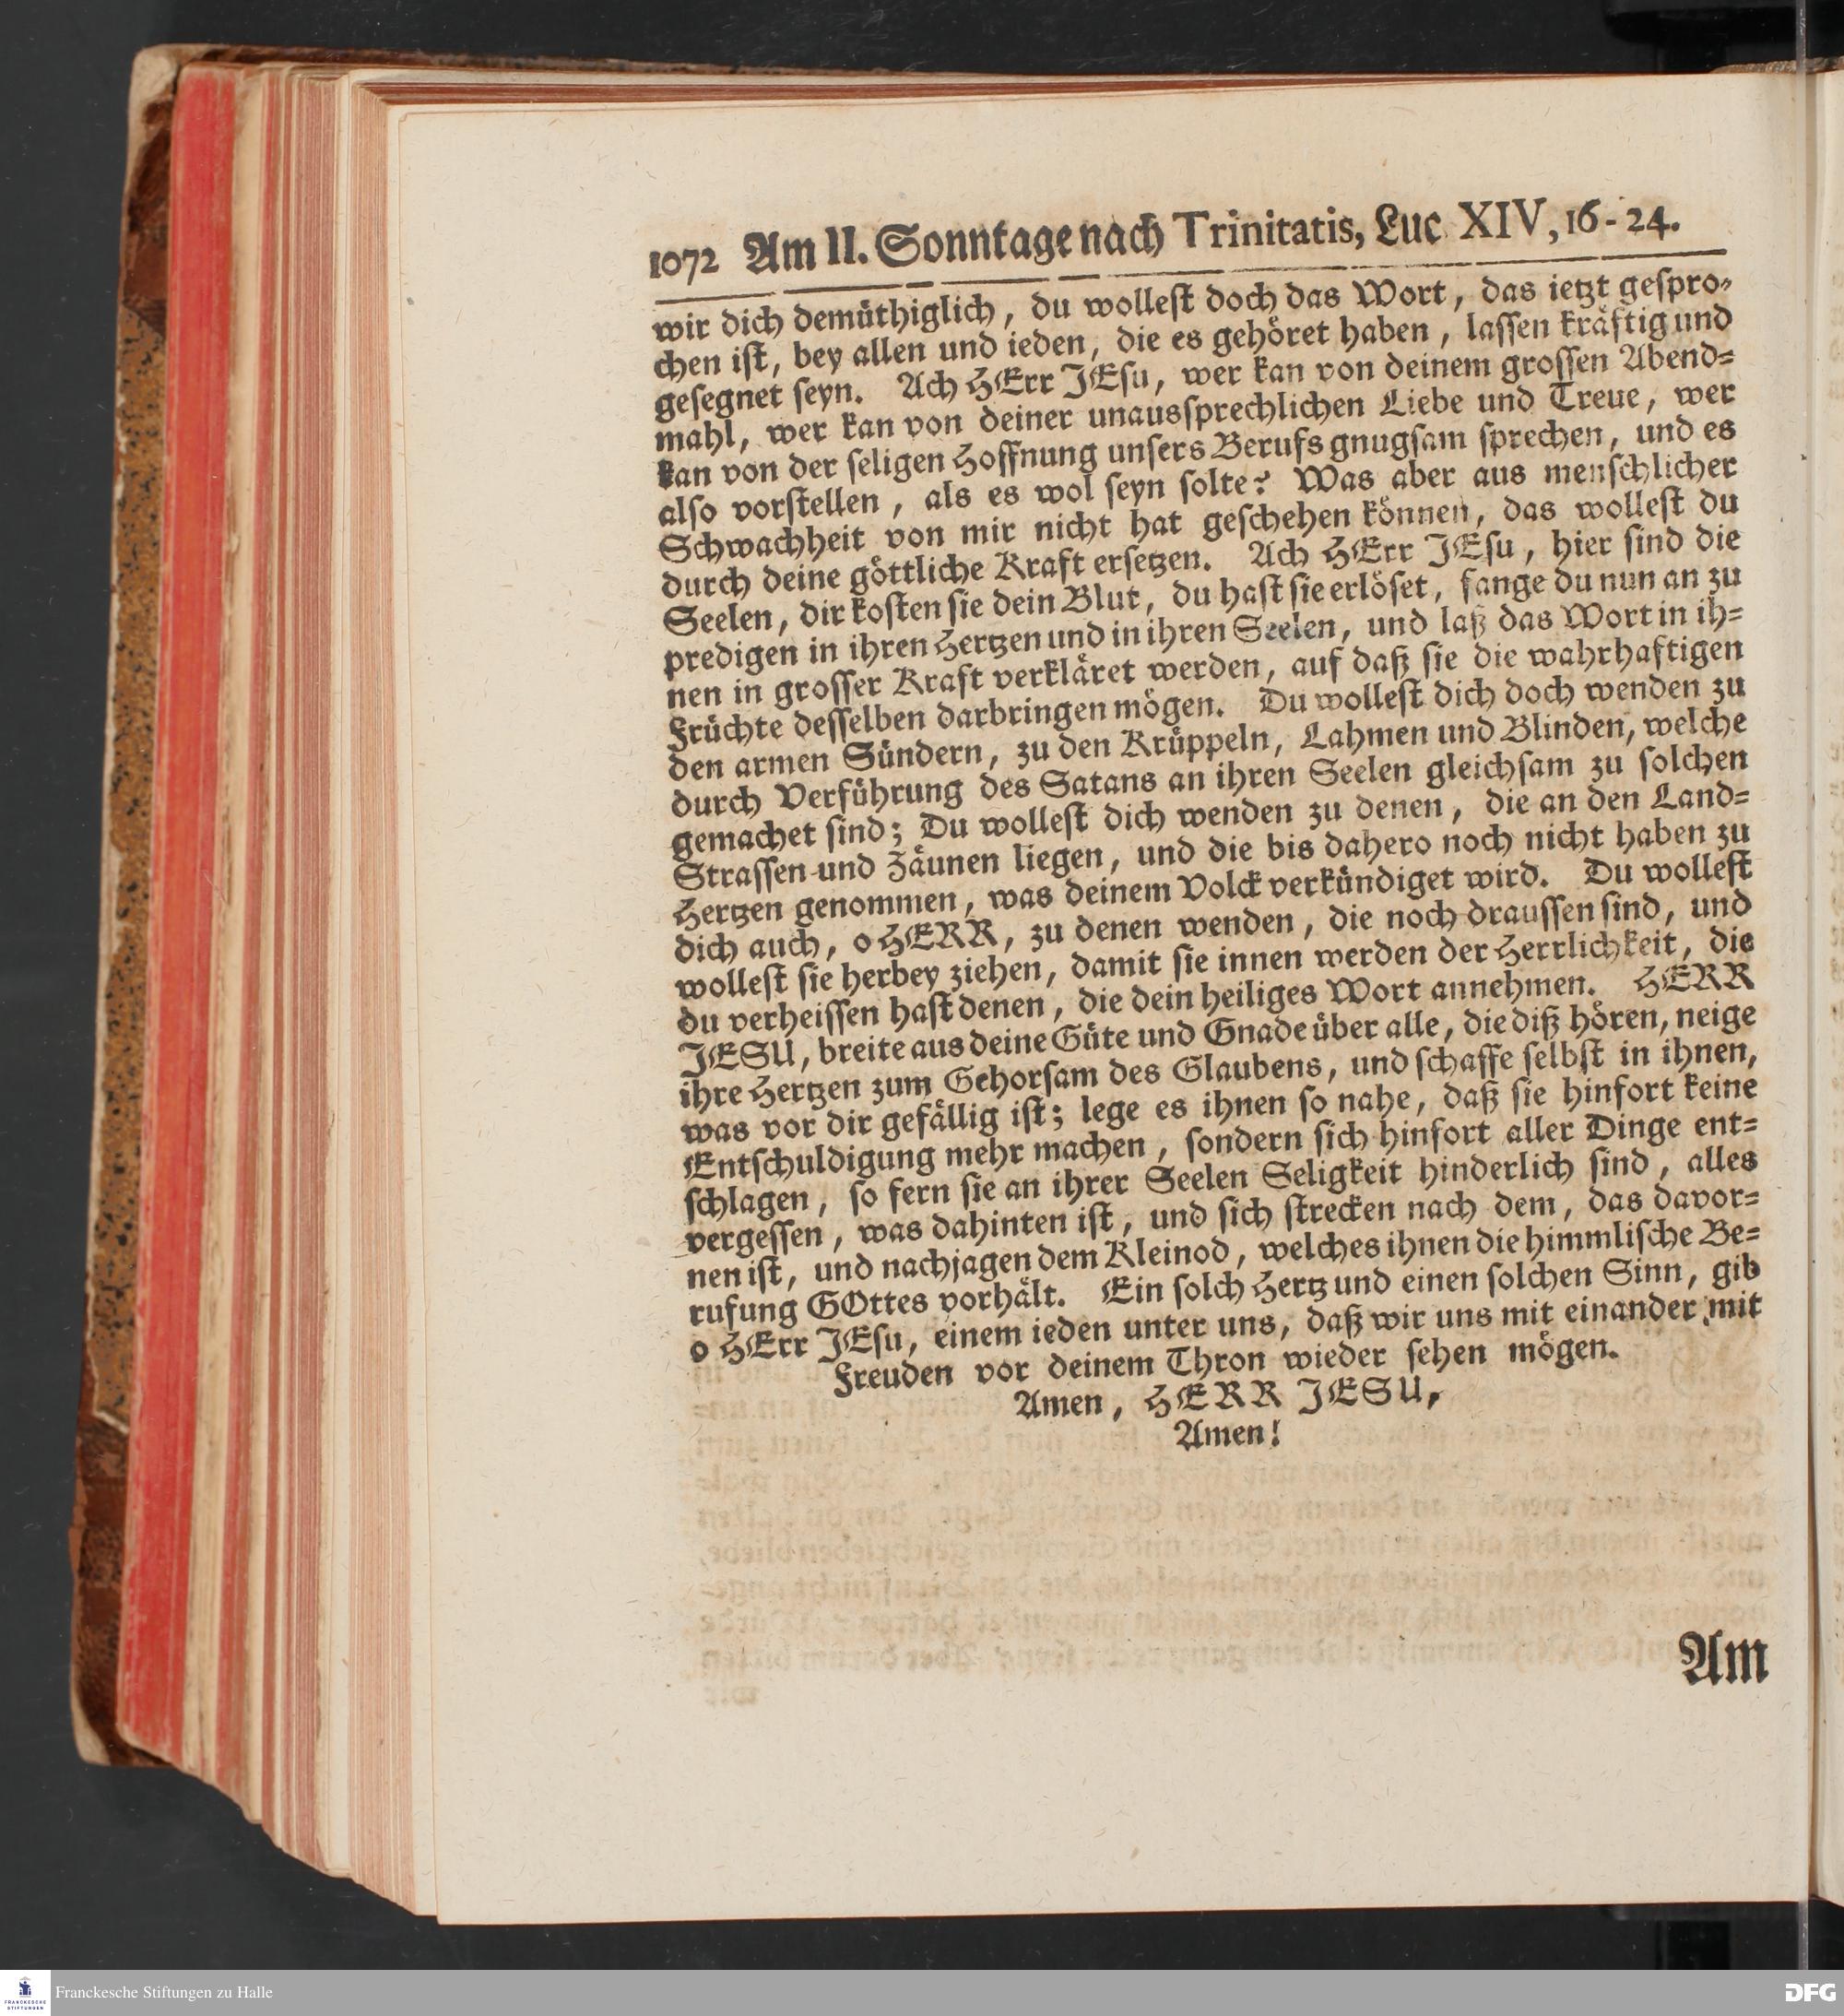 1072 Am II. Sonntage nach Trinitatis, Luc. XIV, 16-24.
wir dich demüthiglich, du wollest doch das Wort, das ietzt gespro-
chen ist, bey allen und ieden, die es gehöret haben, lassen kräftig und
gesegnet seyn. Ach HErr JEsu, wer kan von deinem grossen Abend-
mahl, wer kan von deiner unaussprechlichen Liebe und Treue, wer
kan von der seligen Hoffnung unsers Berufs gnugsam sprechen, und es
also vorstellen, als es wol seyn solte? Was aber aus menschlicher
Schwachheit von mir nicht hat geschehen können, das wollest du
durch deine göttliche Kraft ersetzen. Ach HErr JEsu, hier sind die
Seelen, dir kosten sie dein Blut, du hast sie erlöset, fange du nun an zu
predigen in ihren Hertzen und in ihren Seelen, und laß das Wort in ih-
nen in grosser Kraft verkläret werden, auf daß sie die wahrhaftigen
Früchte desselben darbringen mögen. Du wollest dich doch wenden zu
den armen Sündern, zu den Krüppeln, Lahmen und Blinden, welche
durch Verführung des Satans an ihren Seelen gleichsam zu solchen
gemachet sind; Du wollest dich wenden zu denen, die an den Land-
Strassen und Zäunen liegen, und die bis dahero noch nicht haben zu
Hertzen genommen, was deinem Volck verkündiget wird. Du wollest
dich auch, o HERR, zu denen wenden, die noch draussen sind, und
wollest sie herbey ziehen, damit sie innen werden der Herrlichkeit, die
du verheissen hast denen, die dein heiliges Wort annehmen. HERR
JESU, breite aus deine Güte und Gnade über alle, die diß hören, neige
ihre Hertzen zum Gehorsam des Glaubens, und schaffe selbst in ihnen,
was vor dir gefällig ist; lege es ihnen so nahe, daß sie hinfort keine
Entschuldigung mehr machen, sondern sich hinfort aller Dinge ent-
schlagen, so fern sie an ihrer Seelen Seligkeit hinderlich sind, alles
vergessen, was dahinten ist, und sich strecken nach dem, das davor-
nen ist, und nachjagen dem Kleinod, welches ihnen die himmlische Be-
rufung GOttes vorhält. Ein solch Hertz und einen solchen Sinn, gib
o HErr JEsu, einem ieden unter uns, daß wir uns mit einander mit
Freuden vor deinem Thron wieder sehen mögen.
Amen, HERR JESU,
Amen!
Am
FRANCKESCHE
STIFTUNGEN
Franckesche Stiftungen zu Halle
DFG